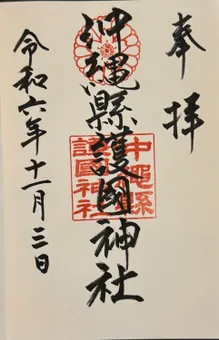 奉拝
沖縄縣護國神社
令和六年十一月三日
沖縄県
護國神社